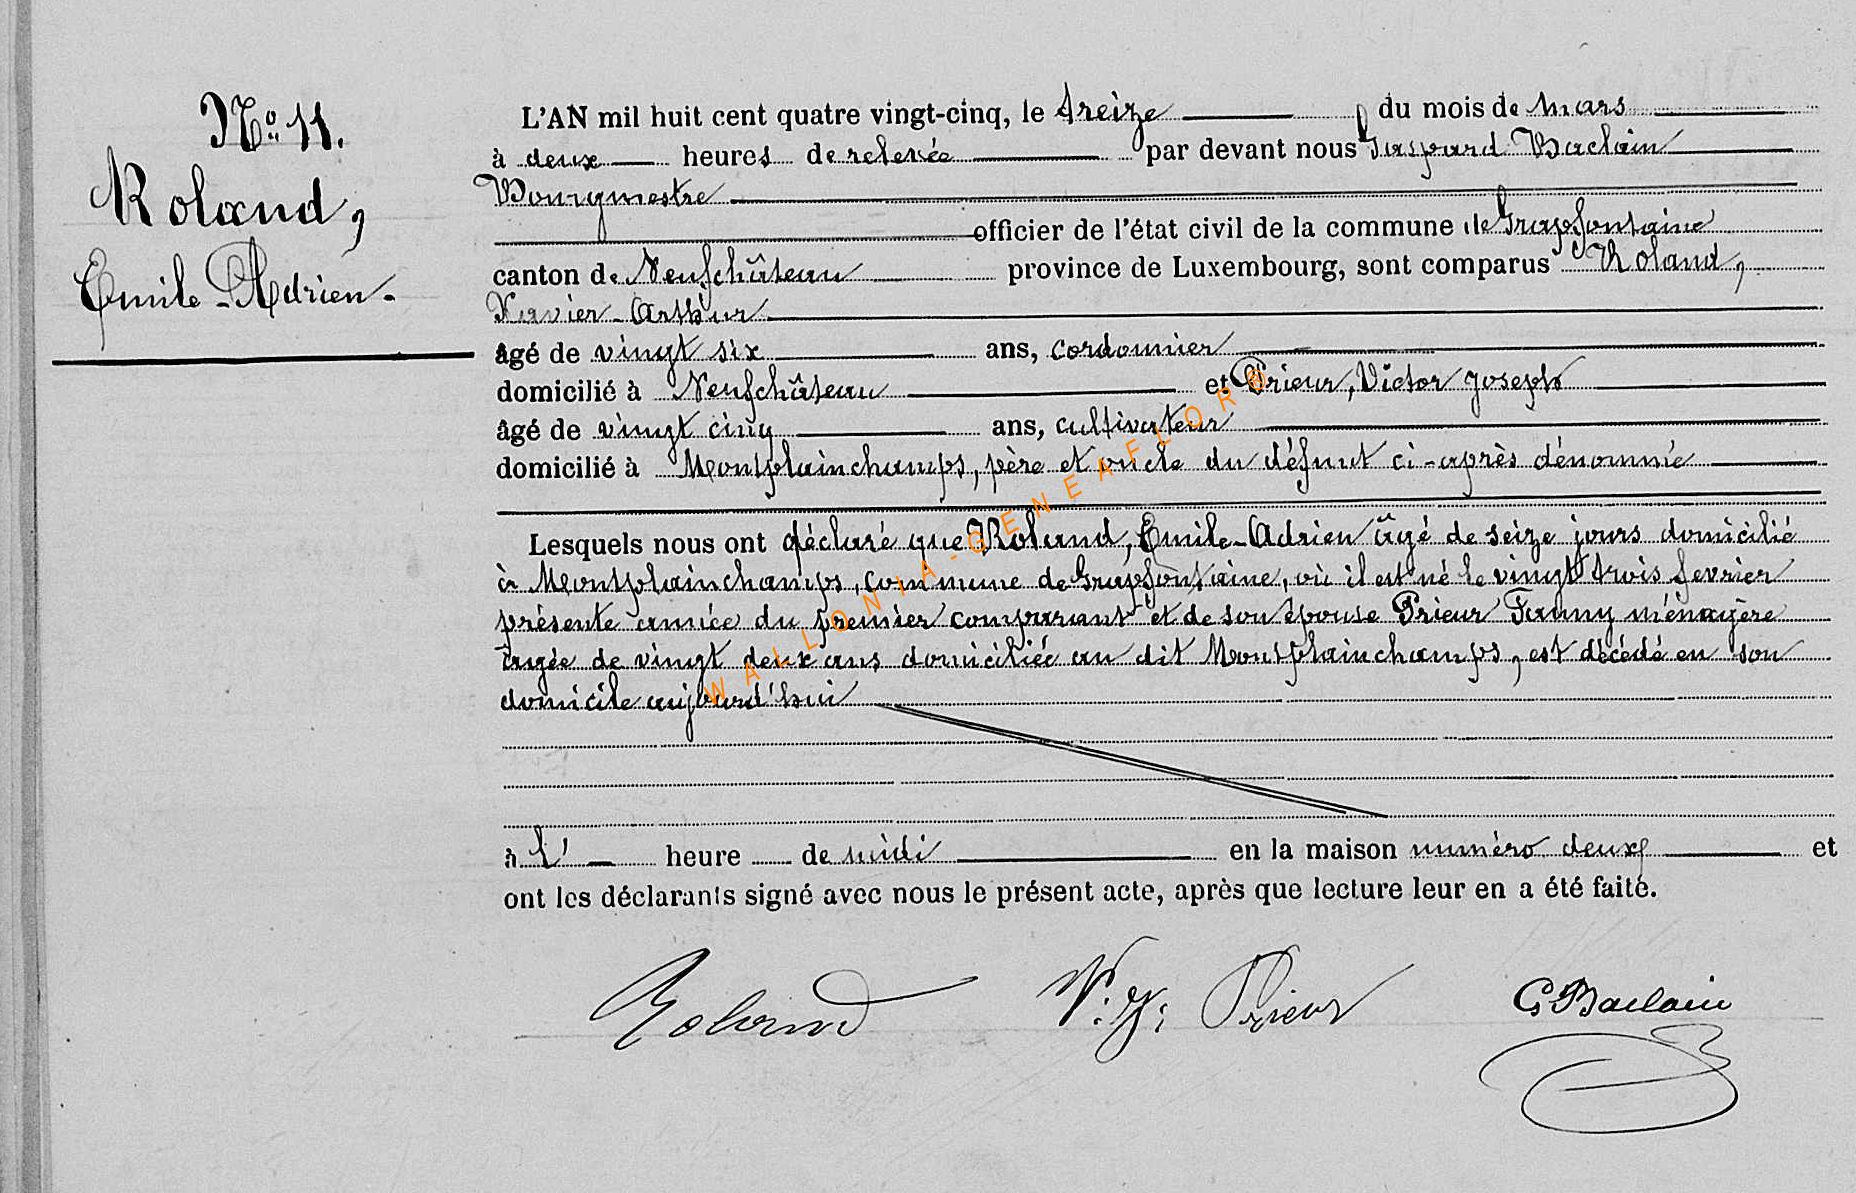 No 11.
Roland,
Emile-Adrien-
L'AN mil huit cent quatre vingt-cinq, le treize du mois de mars
à deux heures de relevée par devant nous Gaspard Baclain
Bourgmestre
officier de l'état civil de la commune de Grapfontaine
canton de Neufchâteau province de Luxembourg, sont comparus Roland,
Xavier-Arthur
âgé de vingt six ans, cordonnier
domicilié à Neufchâteau et Prieur, Victor Joseph
âgé de vingt cinq ans, cultivateur
domicilié à Montplainchamps, père et oncle du défunt ci-après dénommé
Lesquels nous ont déclaré que Roland, Emile-Adrien âgé de seize jours domicilié
à Montplainchamps, commune de Grapfontaine, où il est né le vingt trois fevrier
présente année du premier comparant et de son épouse Prieur Fanny ménagère
âgée de vingt deux ans domiciliée au dit Montplainchamps, est décédé en son
domicile aujourd'hui
à l' heure de midi en la maison numéro deux et
ont les déclarants signé avec nous le présent acte, après que lecture leur en a été faite.
Roland V. J. Prieur G Baclain
WALLONIA-GENEAFLOR®